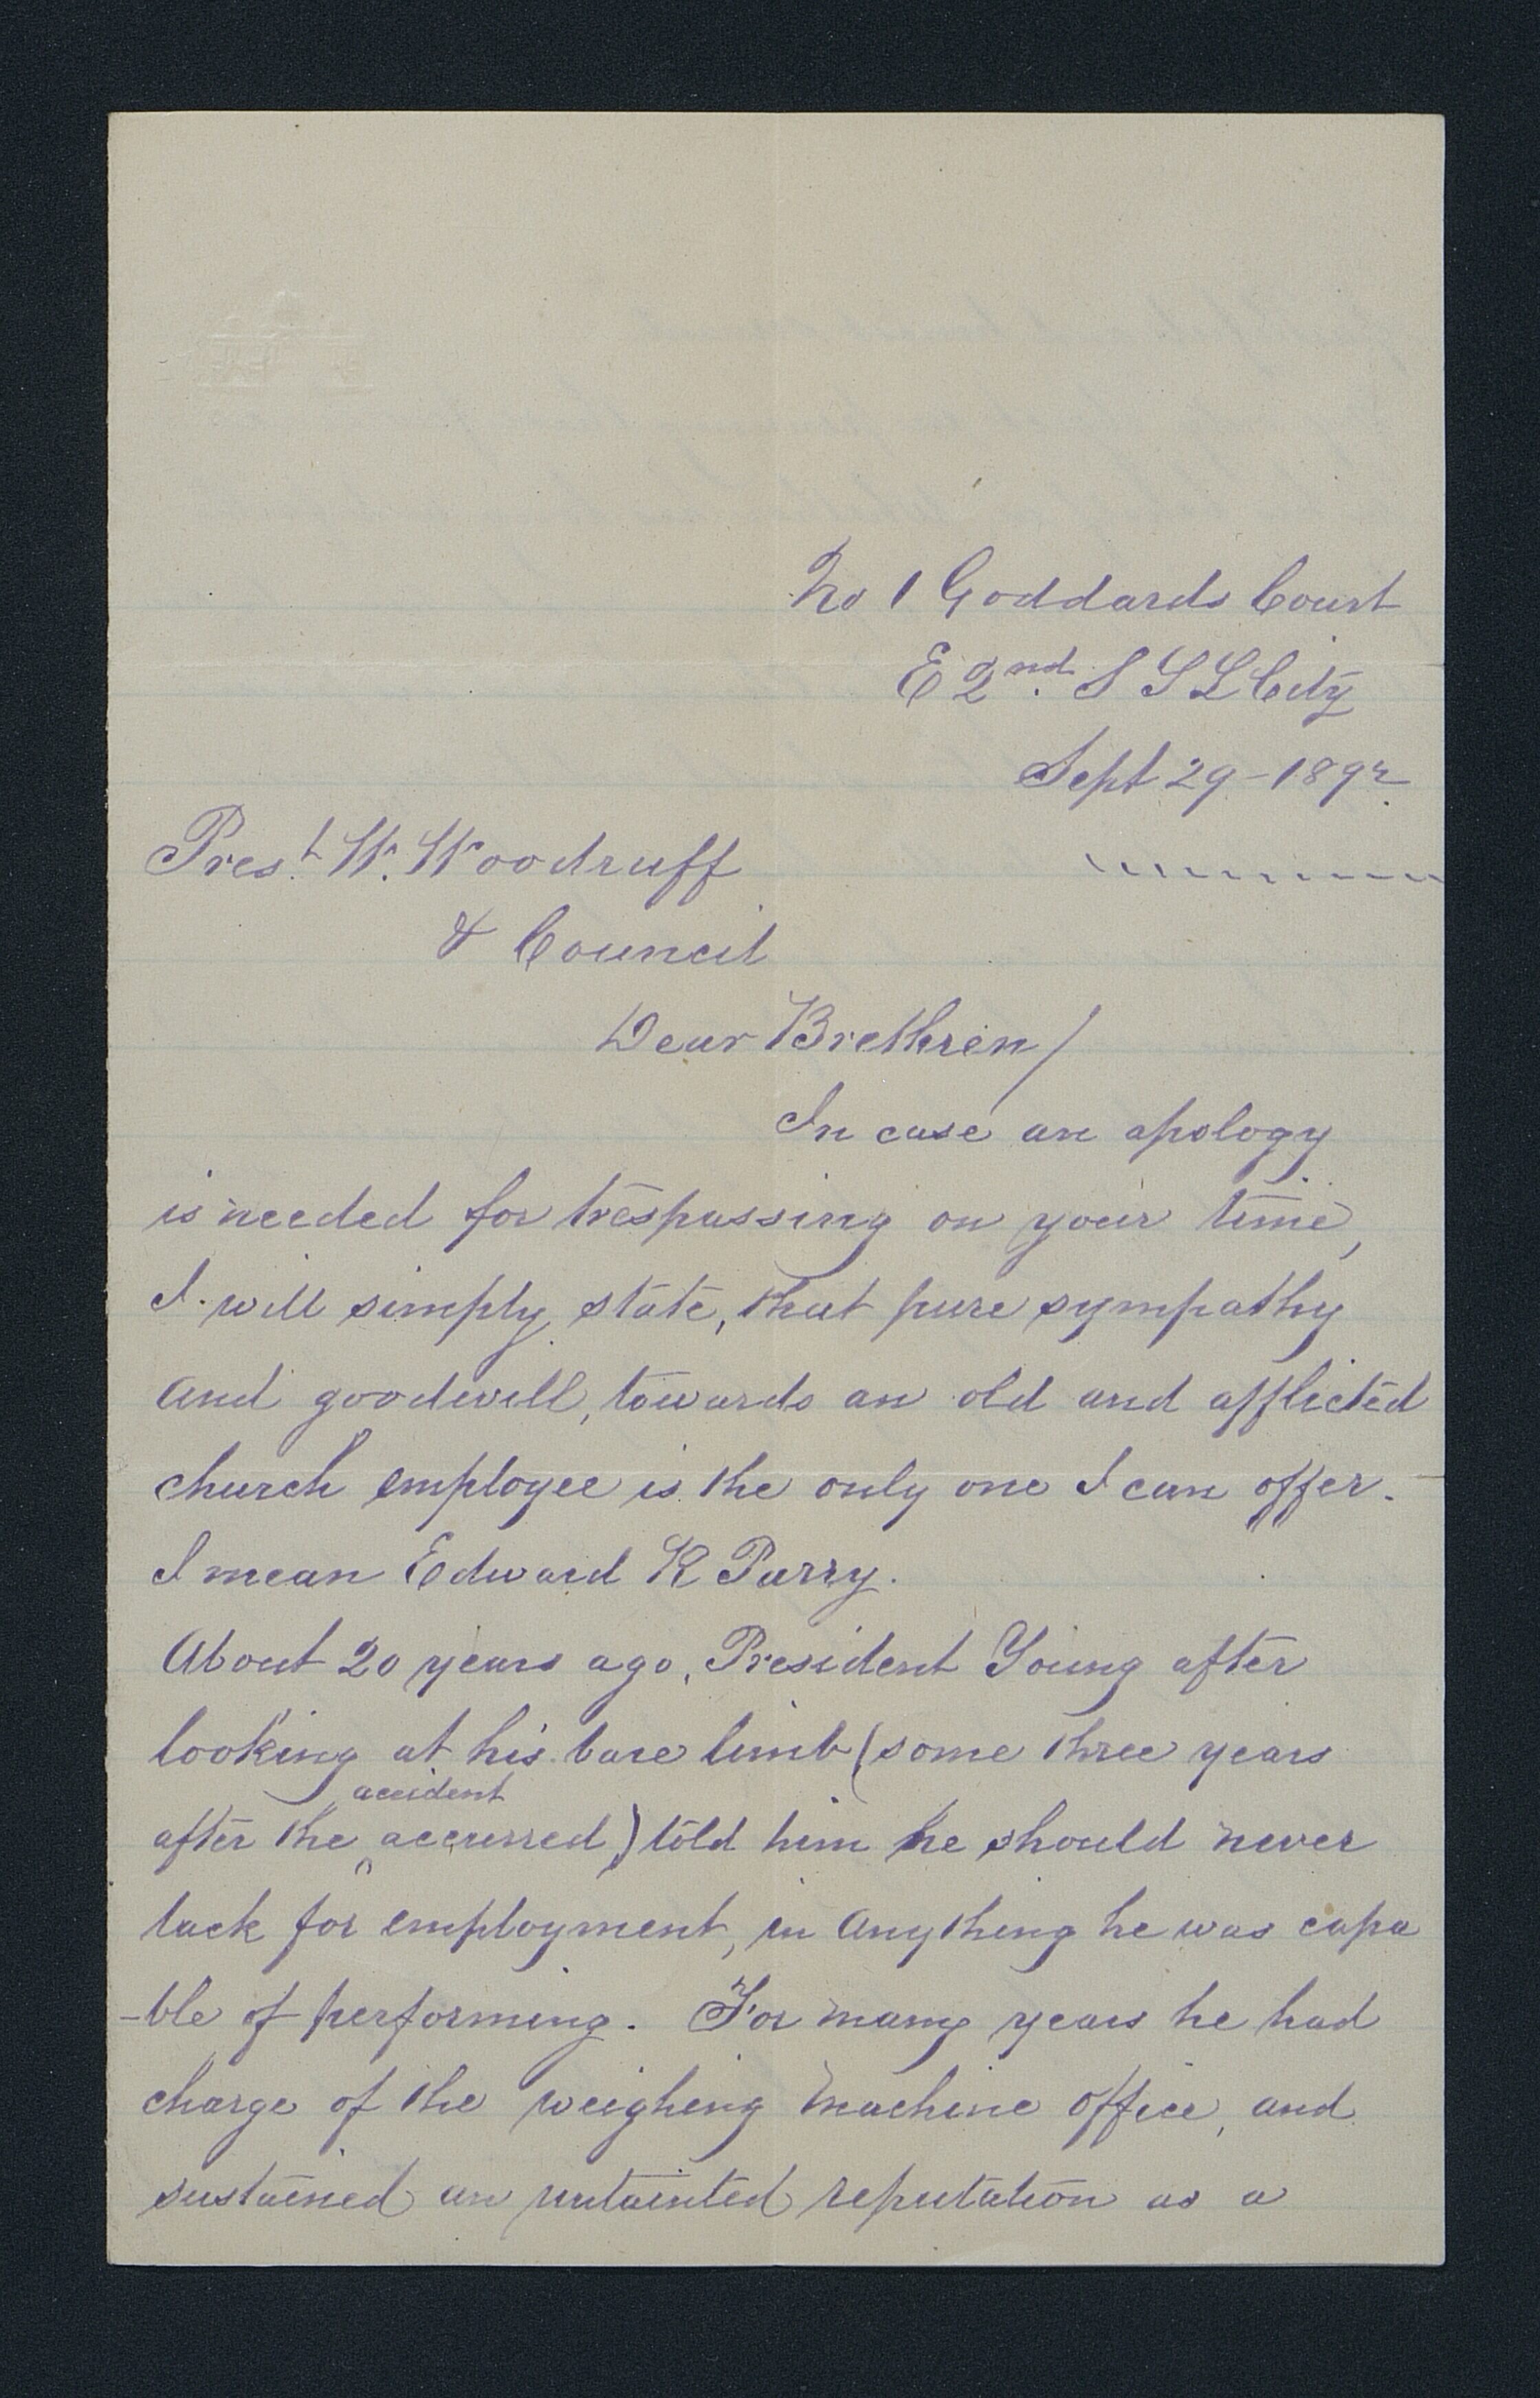 No 1 Goddards Court
E 2nd. S S L City
Sept 29 - 1892
Prest. W. Woodruff
& Council
Dear Brethren/
In case an apology
is needed for trespassing on your time,
I will simply state, that pure sympathy
and goodwill, towards an old and afflicted
church employee is the only one I can offer.
I mean Edward R Parry.
About 20 years ago, President Young after
looking at his bare limb (some three years
accident
after the accurred) told him he should never
lack for employment, in anything he was capa
-ble of performing. For many years he had
charge of the weighing machine office, and
sustained an untainted reputation as a